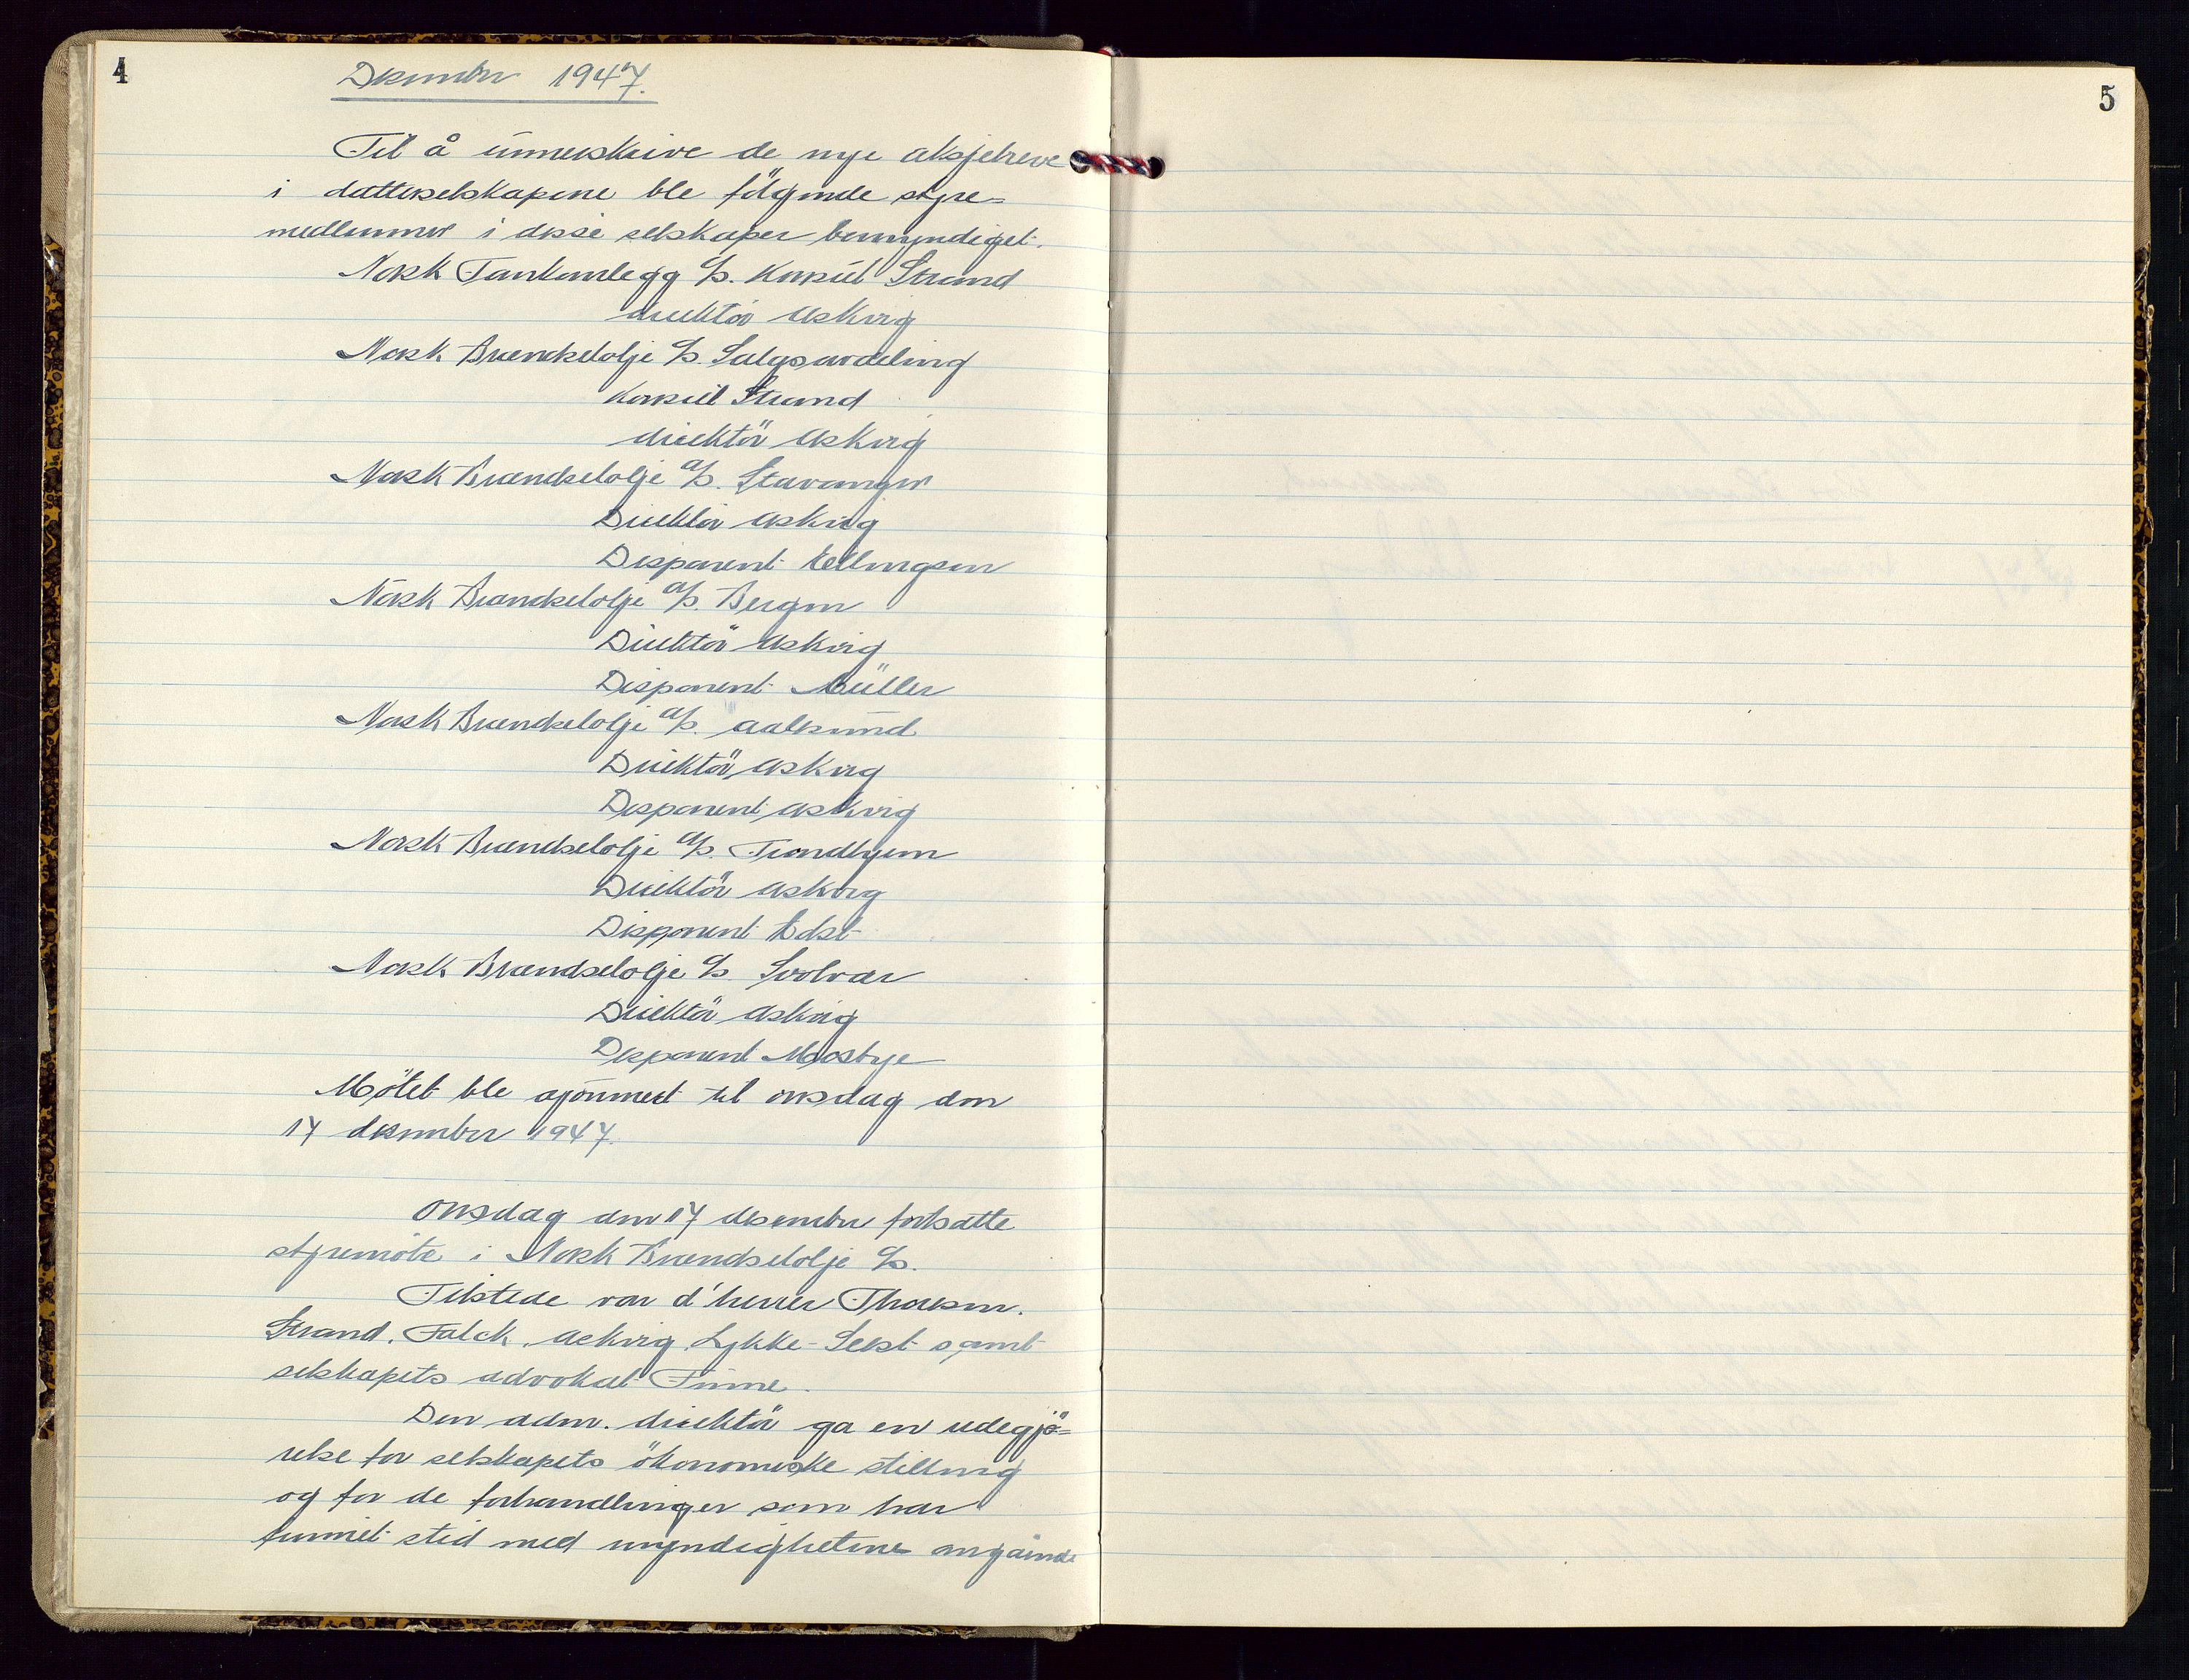 4
Desember 1947.
Til å underskrive de nye aksjebreve
i datterselskapene ble følgende styre=
medlemmer i disse selskaper bemyndiget.
Norsk Tankanlegg A/S. Konsul Strand
direktör Askvig
Norsk Brændselolje A/S. Salgsavdeling
Konsul Strand
direktör Askvig
Norsk Brændselolje A/S. Stavanger
Direktör Askvig
Disponent Ellingsen
Norsk Brændselolje A/S. Bergen
Direktör Askvig
Disponent Müller
Norsk Brændselolje A/S. Aalesund
Direktör Askvig
Disponent Askvig
Norsk Brændselolje A/S. Trondhjem
Direktör Askvig
Disponent
Norsk Brændselolje A/S Svolvær
Direktör Askvig
Disponent
Mötet ble ajournert til onsdag den
17 desember 1947.
Onsdag den 17 desember fortsatte
styremöte i Norsk Brændselolje A/S.
Tilstede var d'herrer Thoresen.
Strand. Falck. Askvig. Lykke-Seest samt
selskapets advokat Finne.
Den adm. direktör ga en redegjö=
relse for selskapets ökonomiske stilling
og for de forhandlinger som har
funnet sted med myndighetene angående
5